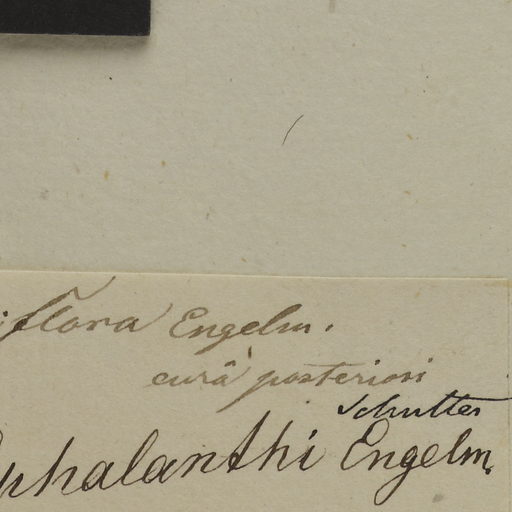 iflora Engelm.
curâ posteriori
Schutter
uhalanthi Engelm.